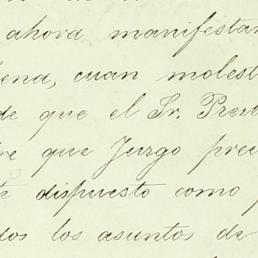 ahora manifestar
ena, cuan molest
de que el Sr. Presi
re que Juzgo preci
te dispuesto como p
dos los asuntos de